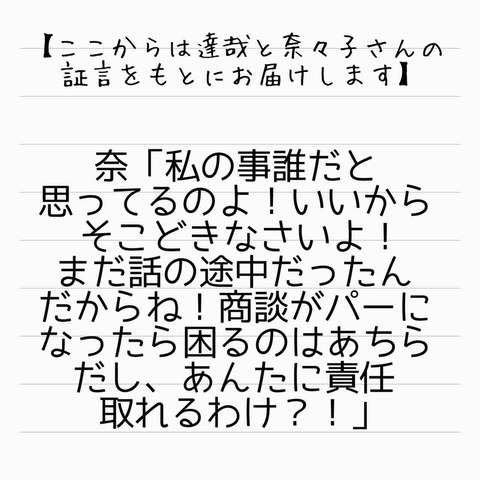 【ここからは達哉と奈々子さんの
証言をもとにお届けします】
奈「私の事誰だと
思ってるのよ！いいから
そこどきなさいよ！
まだ話の途中だったん
だからね！商談がパーに
なったら困るのはあちら
だし、あんたに責任
取れるわけ？！」